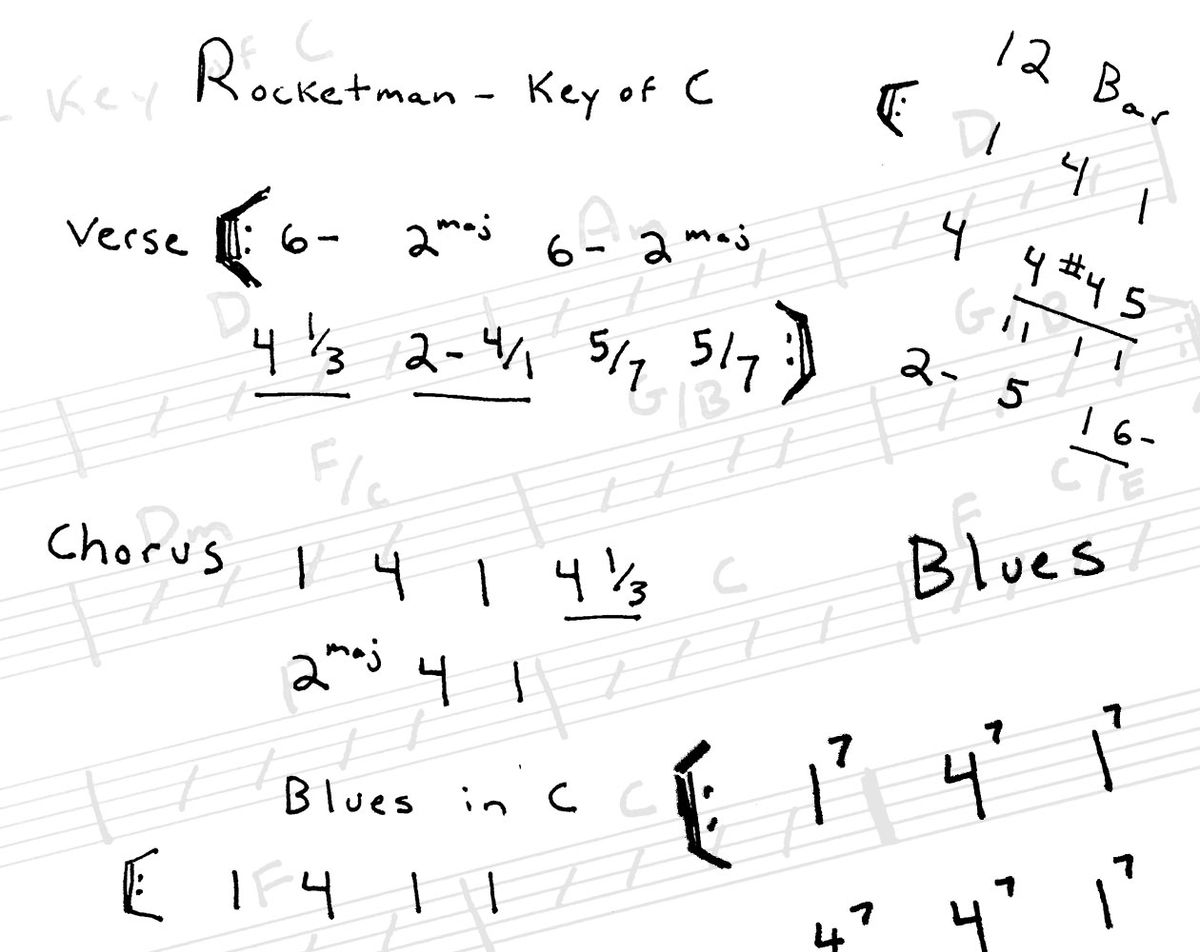 Rocketman - Key of C
Verse 6- 2maj 6- 2maj
4 1/3 2- 4/1 5/7 5/7
Chorus 1 4 1 4 1/3
2maj 4 1
Blues in C
1 4 1 1
12 Bar
1 4 1
4 4 #4 5
2- 5 1 6-
Blues
1⁷ 4⁷ 1⁷
4⁷ 4⁷ 1⁷
Key of C
D Am D
G/B
G/B
F/C
C/E
Dm
F
C
C
F